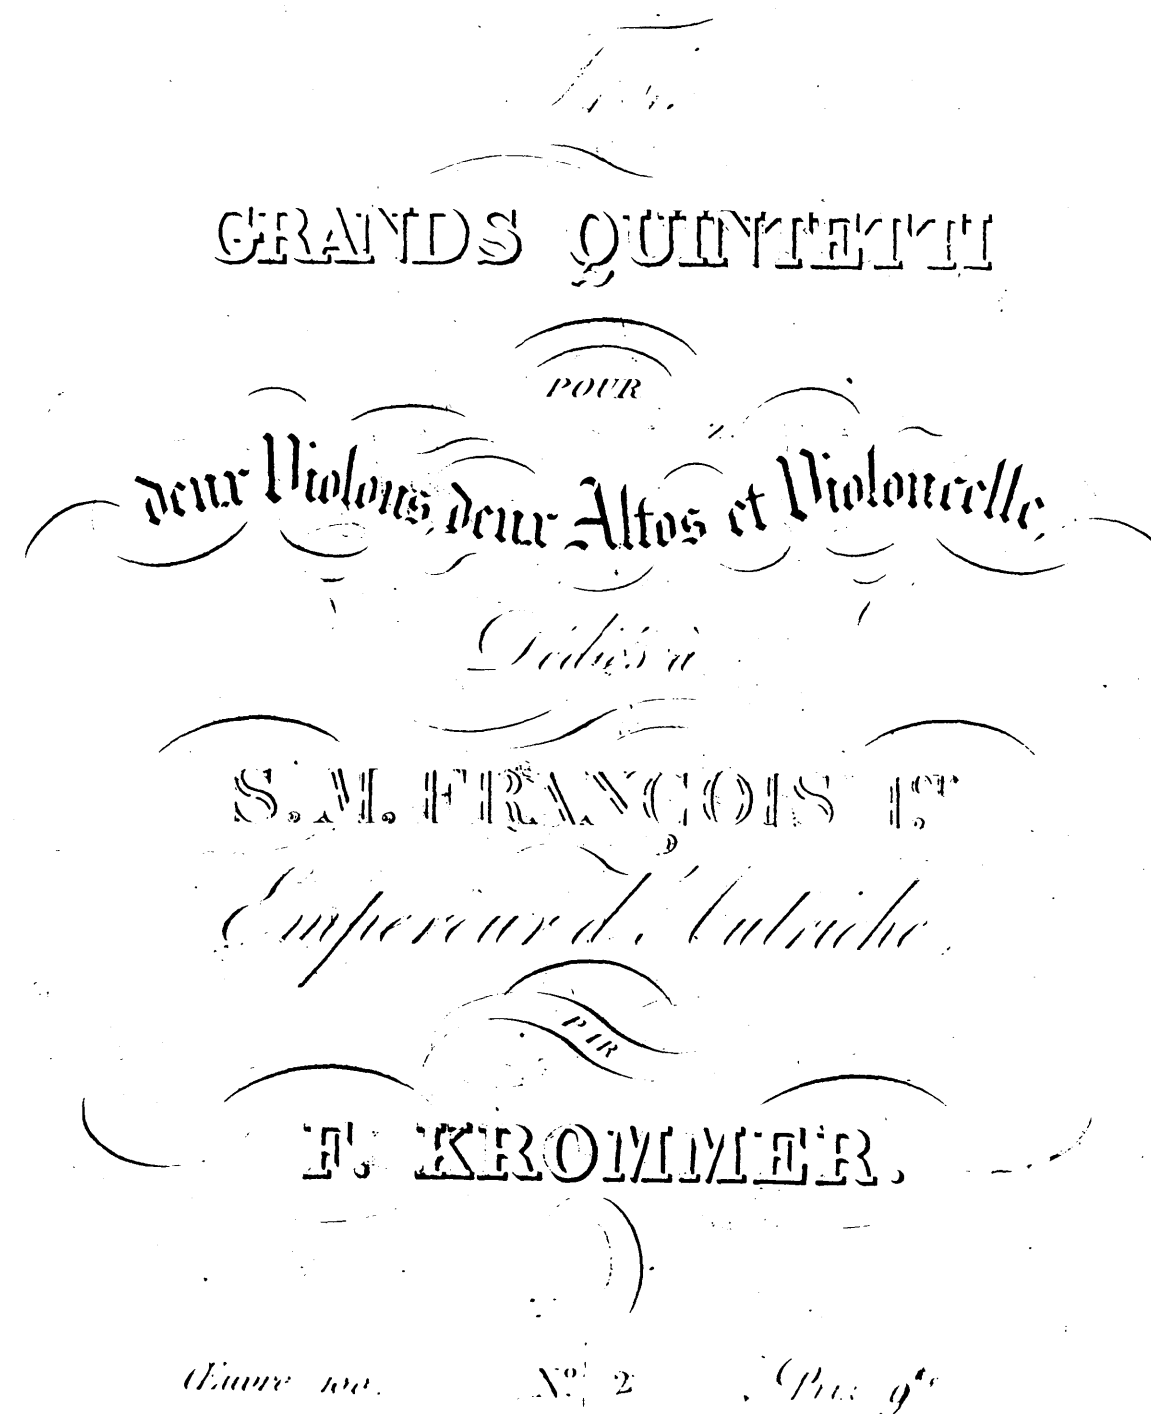 GRANDS QUINTETTI
POUR
deux Violons, deux Altos et Violoncelle,
Dédiés à
S. M. FRANÇOIS I.er
Empereur d'Autriche,
PAR
F. KROMMER.
Œuvre 100. No. 2 Prix 9